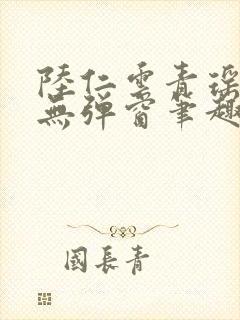 陸仁雲青瑶
無彈窗筆趣
國長青